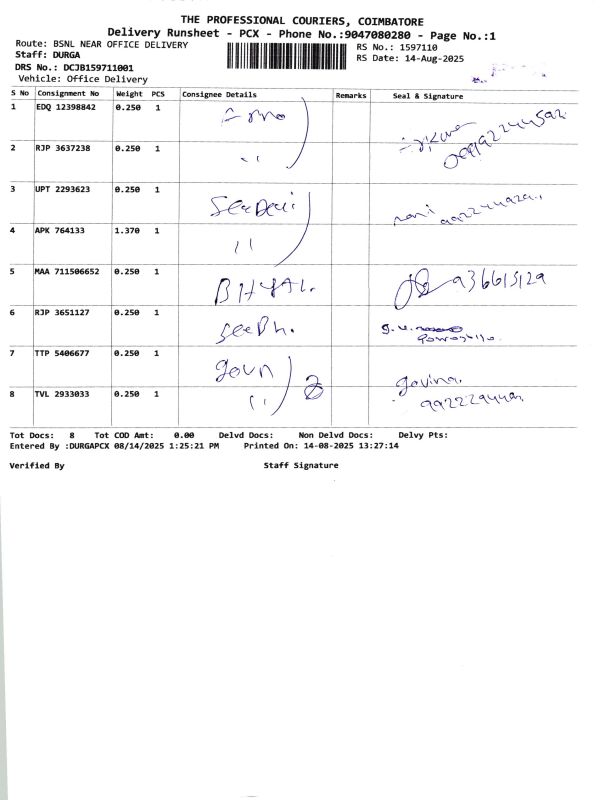 THE PROFESSIONAL COURIERS, COIMBATORE
Delivery Runsheet - PCX - Phone No.:9047080280 - Page No.:1
Route: BSNL NEAR OFFICE DELIVERY
RS No.: 1597110
Staff: DURGA
RS Date: 14-Aug-2025
DRS No.: DCJB159711001
Vehicle: Office Delivery
S No Consignment No Weight PCS Consignee Details Remarks Seal & Signature
1 EDQ 12398842 0.250 1
2 RJP 3637238 0.250 1
3 UPT 2293623 0.250 1
4 APK 764133 1.370 1
5 MAA 711506652 0.250 1
6 RJP 3651127 0.250 1
7 TTP 5406677 0.250 1 govn
8 TVL 2933033 0.250 1
Tot Docs: 8 Tot COD Amt: 0.00 Delvd Docs: Non Delvd Docs: Delvy Pts:
Entered By :DURGAPCX 08/14/2025 1:25:21 PM Printed On: 14-08-2025 13:27:14
Verified By Staff Signature